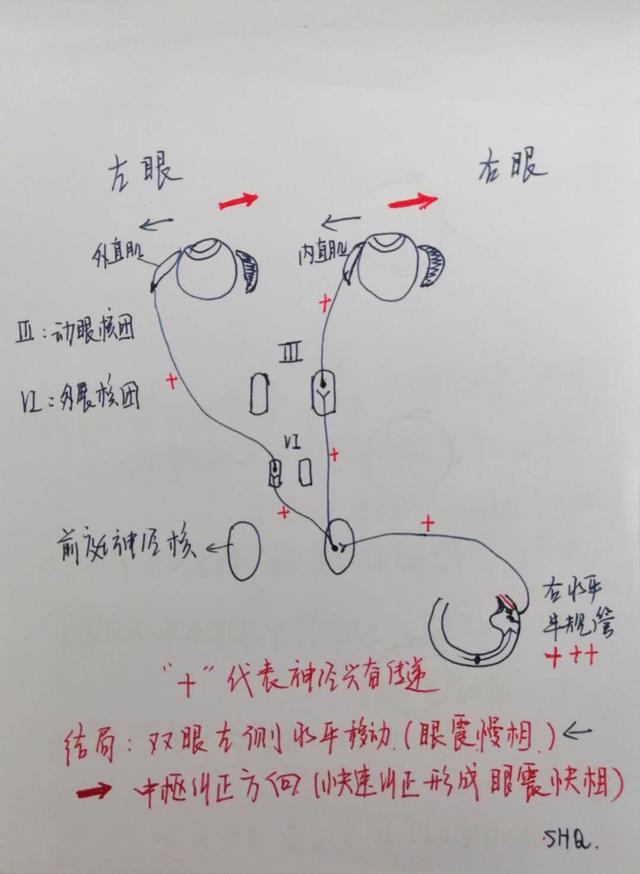 左眼
右眼
外直肌
内直肌
III：动眼核团
III
VI：外展核团
VI
+
+
+
+
+
+
前庭神经核
右水平
半规管
+ ++
"+"代表神经兴奋传递
结局：双眼左侧水平移动.(眼震慢相.)
中枢纠正方向(快速纠正形成眼震快相)
SHQ.